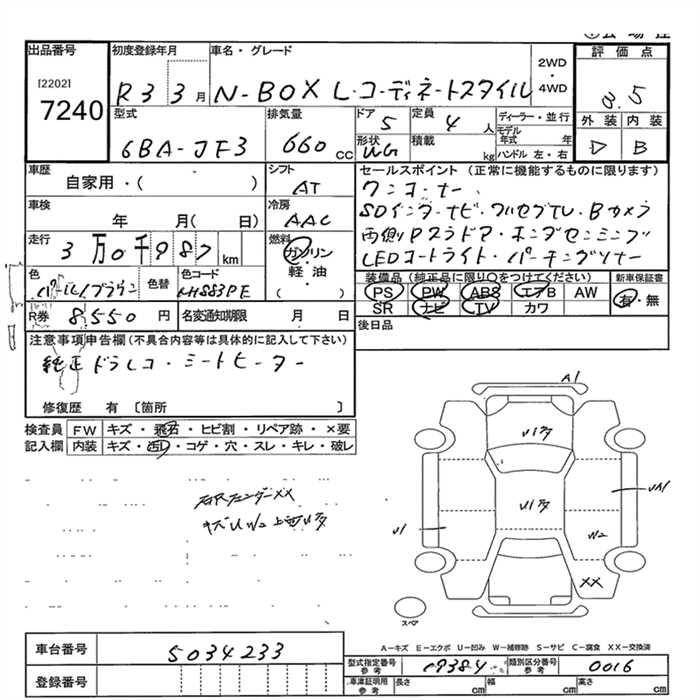 出品番号 初度登録年月 車名・グレード 2WD・4WD 評価点
[2202]
7240
R3 3月 N-BOX L・コーディネートスタイル 3.5
型式 排気量 ドア 定員 ディーラー・並行 外装 内装
6BA-JF3 660cc 5 4人 モデル年式 年 D B
形状 WG 積載 kg ハンドル 左・右
車歴 シフト セールスポイント (正常に機能するものに限ります)
自家用・( ) AT ワンオーナー
車検 冷房 SDインターナビ・フルセグTV・Bカメラ
年 月( 日) AAC 両側Pスラドア・ホンダセンシング
走行 燃料 LEDコートライト・パーキングソナー
3万0千987km ガソリン
軽油
( )
色 色替 色コード 装備品 (純正品に限り○をつけてください) 新車保証書
NH883PE PS PW ABS エアB AW 有・無
SR ナビ TV カワ
R券 8550円 名変通知期限 月 日 後日品
注意事項申告欄(不具合内容等は具体的に記入して下さい)
純正ドラレコ・シートヒーター
修復歴 有 〔箇所 〕
検査員 FW キズ・飛石・ヒビ割・リペア跡・×要
記入欄 内装 キズ・汚レ・コゲ・穴・スレ・キレ・破レ
A1
U1
U1
UA1
U1
W2
XX
右RフェンダーXX
スペア
A－キズ E－エクボ U－凹み W－補修跡 S－サビ C－腐食 XX－交換済
車台番号 5034233
型式指定番号 参考 19384 類別区分番号 参考 0016
登録番号 車庫証明用 参考 長さ cm 幅 cm 高さ cm